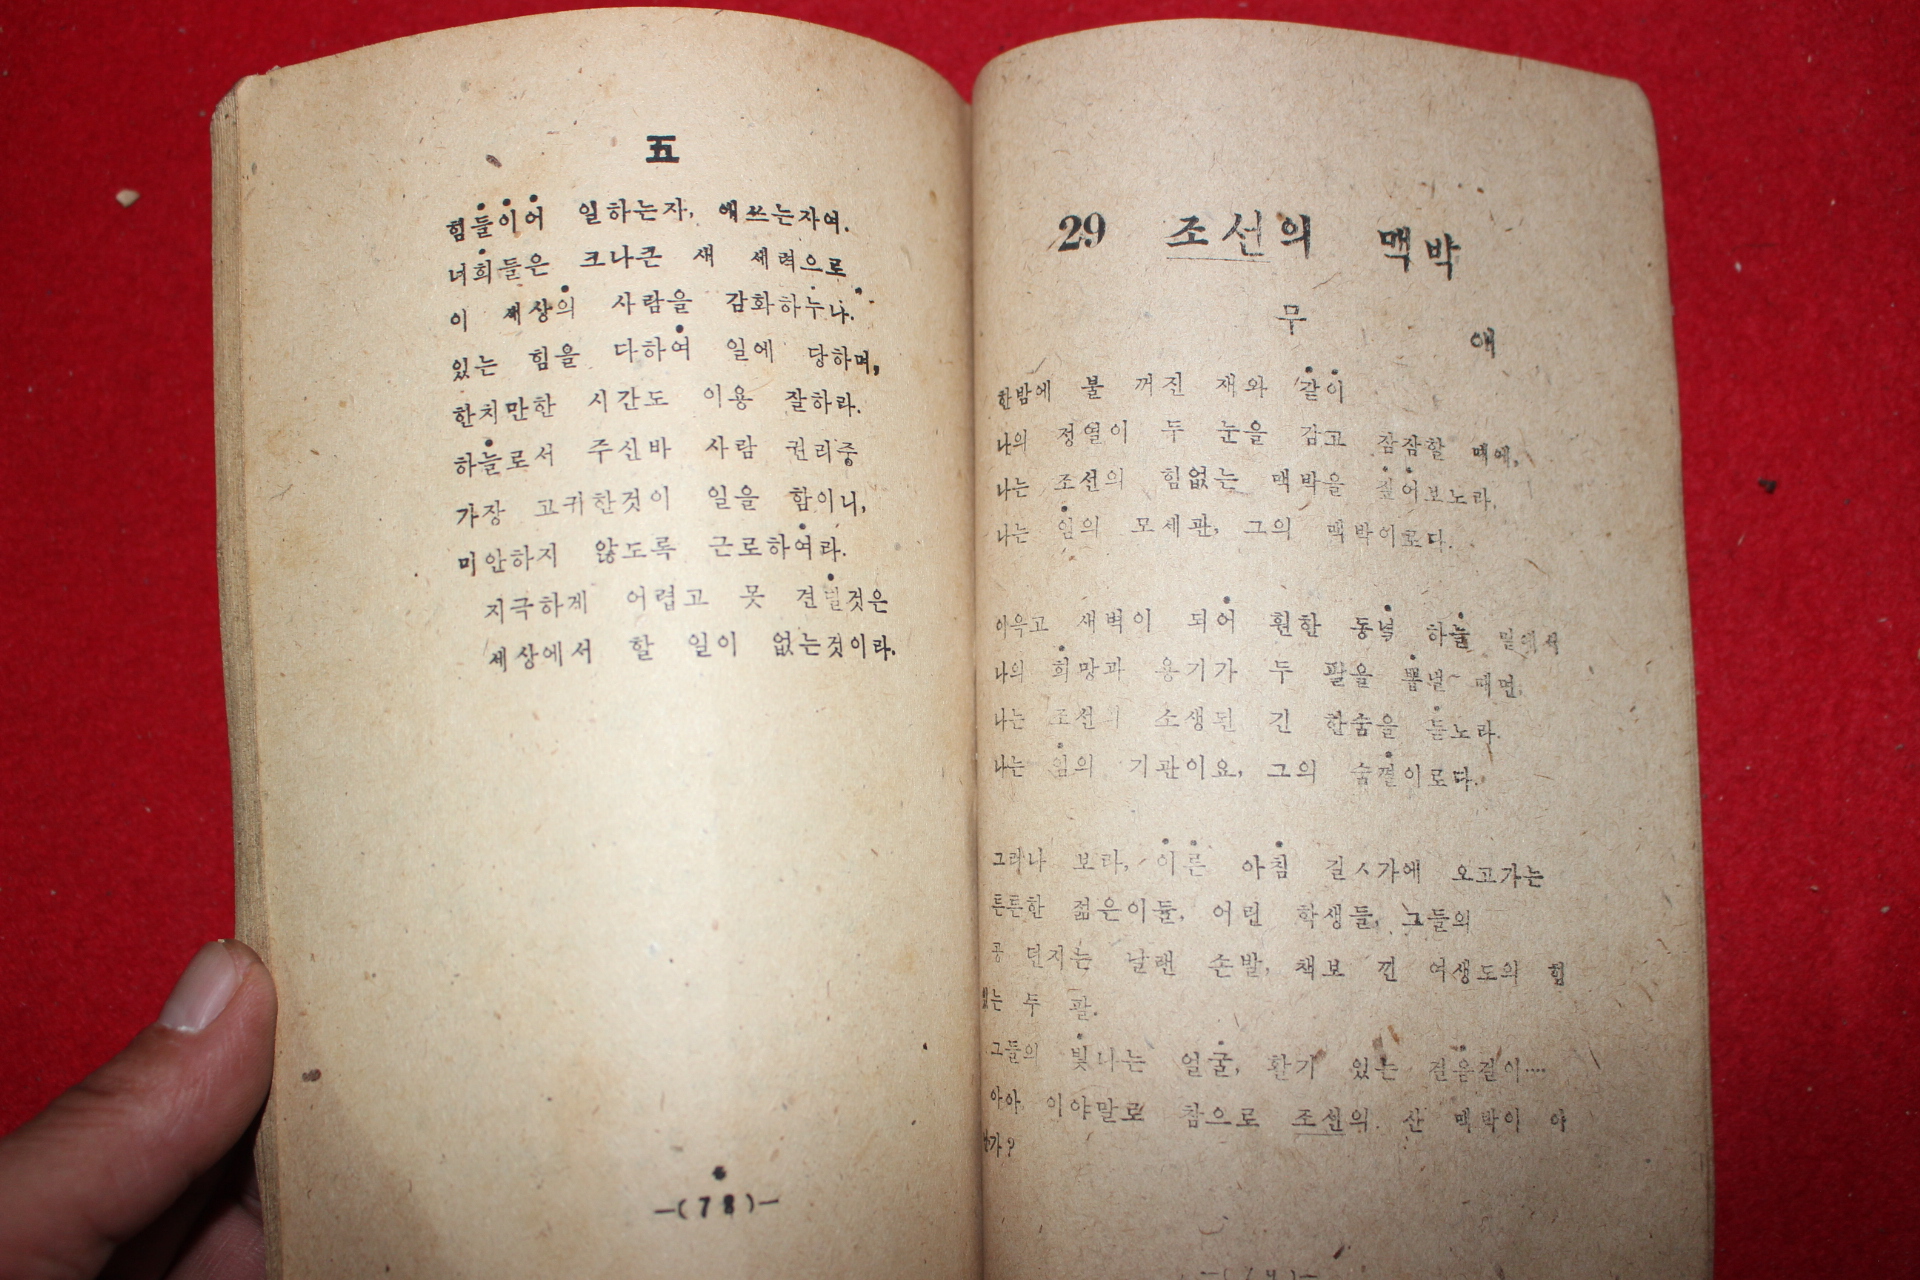 五
힘들이어 일하는자, 애쓰는자여.
너희들은 크나큰 새 세력으로
이 세상의 사람을 감화하누나.
있는 힘을 다하여 일에 당하며,
한치만한 시간도 이용 잘하라.
하늘로서 주신바 사람 권리중
가장 고귀한것이 일을 함이니,
미안하지 않도록 근로하여라.
지극하게 어렵고 못 견딜것은
세상에서 할 일이 없는것이라.
—(78)—
29 조선의 맥박
무 애
한밤에 불 꺼진 재와 같이
나의 정열이 두 눈을 감고 잠잠할 때에,
나는 조선의 힘없는 맥박을 짚어보노라,
나는 임의 모세관, 그의 맥박이로다.
이윽고 새벽이 되어 훤한 동녘 하늘 밑에서
나의 희망과 용기가 두 팔을 뽐낼 때면,
나는 조선의 소생된 긴 한숨을 듣노라.
나는 임의 기관이요, 그의 숨결이로다.
그러나 보라, 이른 아침 길ㅅ가에 오고가는
튼튼한 젊은이들, 어린 학생들, 그들의
공 던지는 날랜 손발, 책보 낀 여생도의 힘
있는 두 팔.
그들의 빛나는 얼굴, 활기 있는 걸음걸이····
아아, 이야말로 참으로 조선의 산 맥박이 아
닌가?